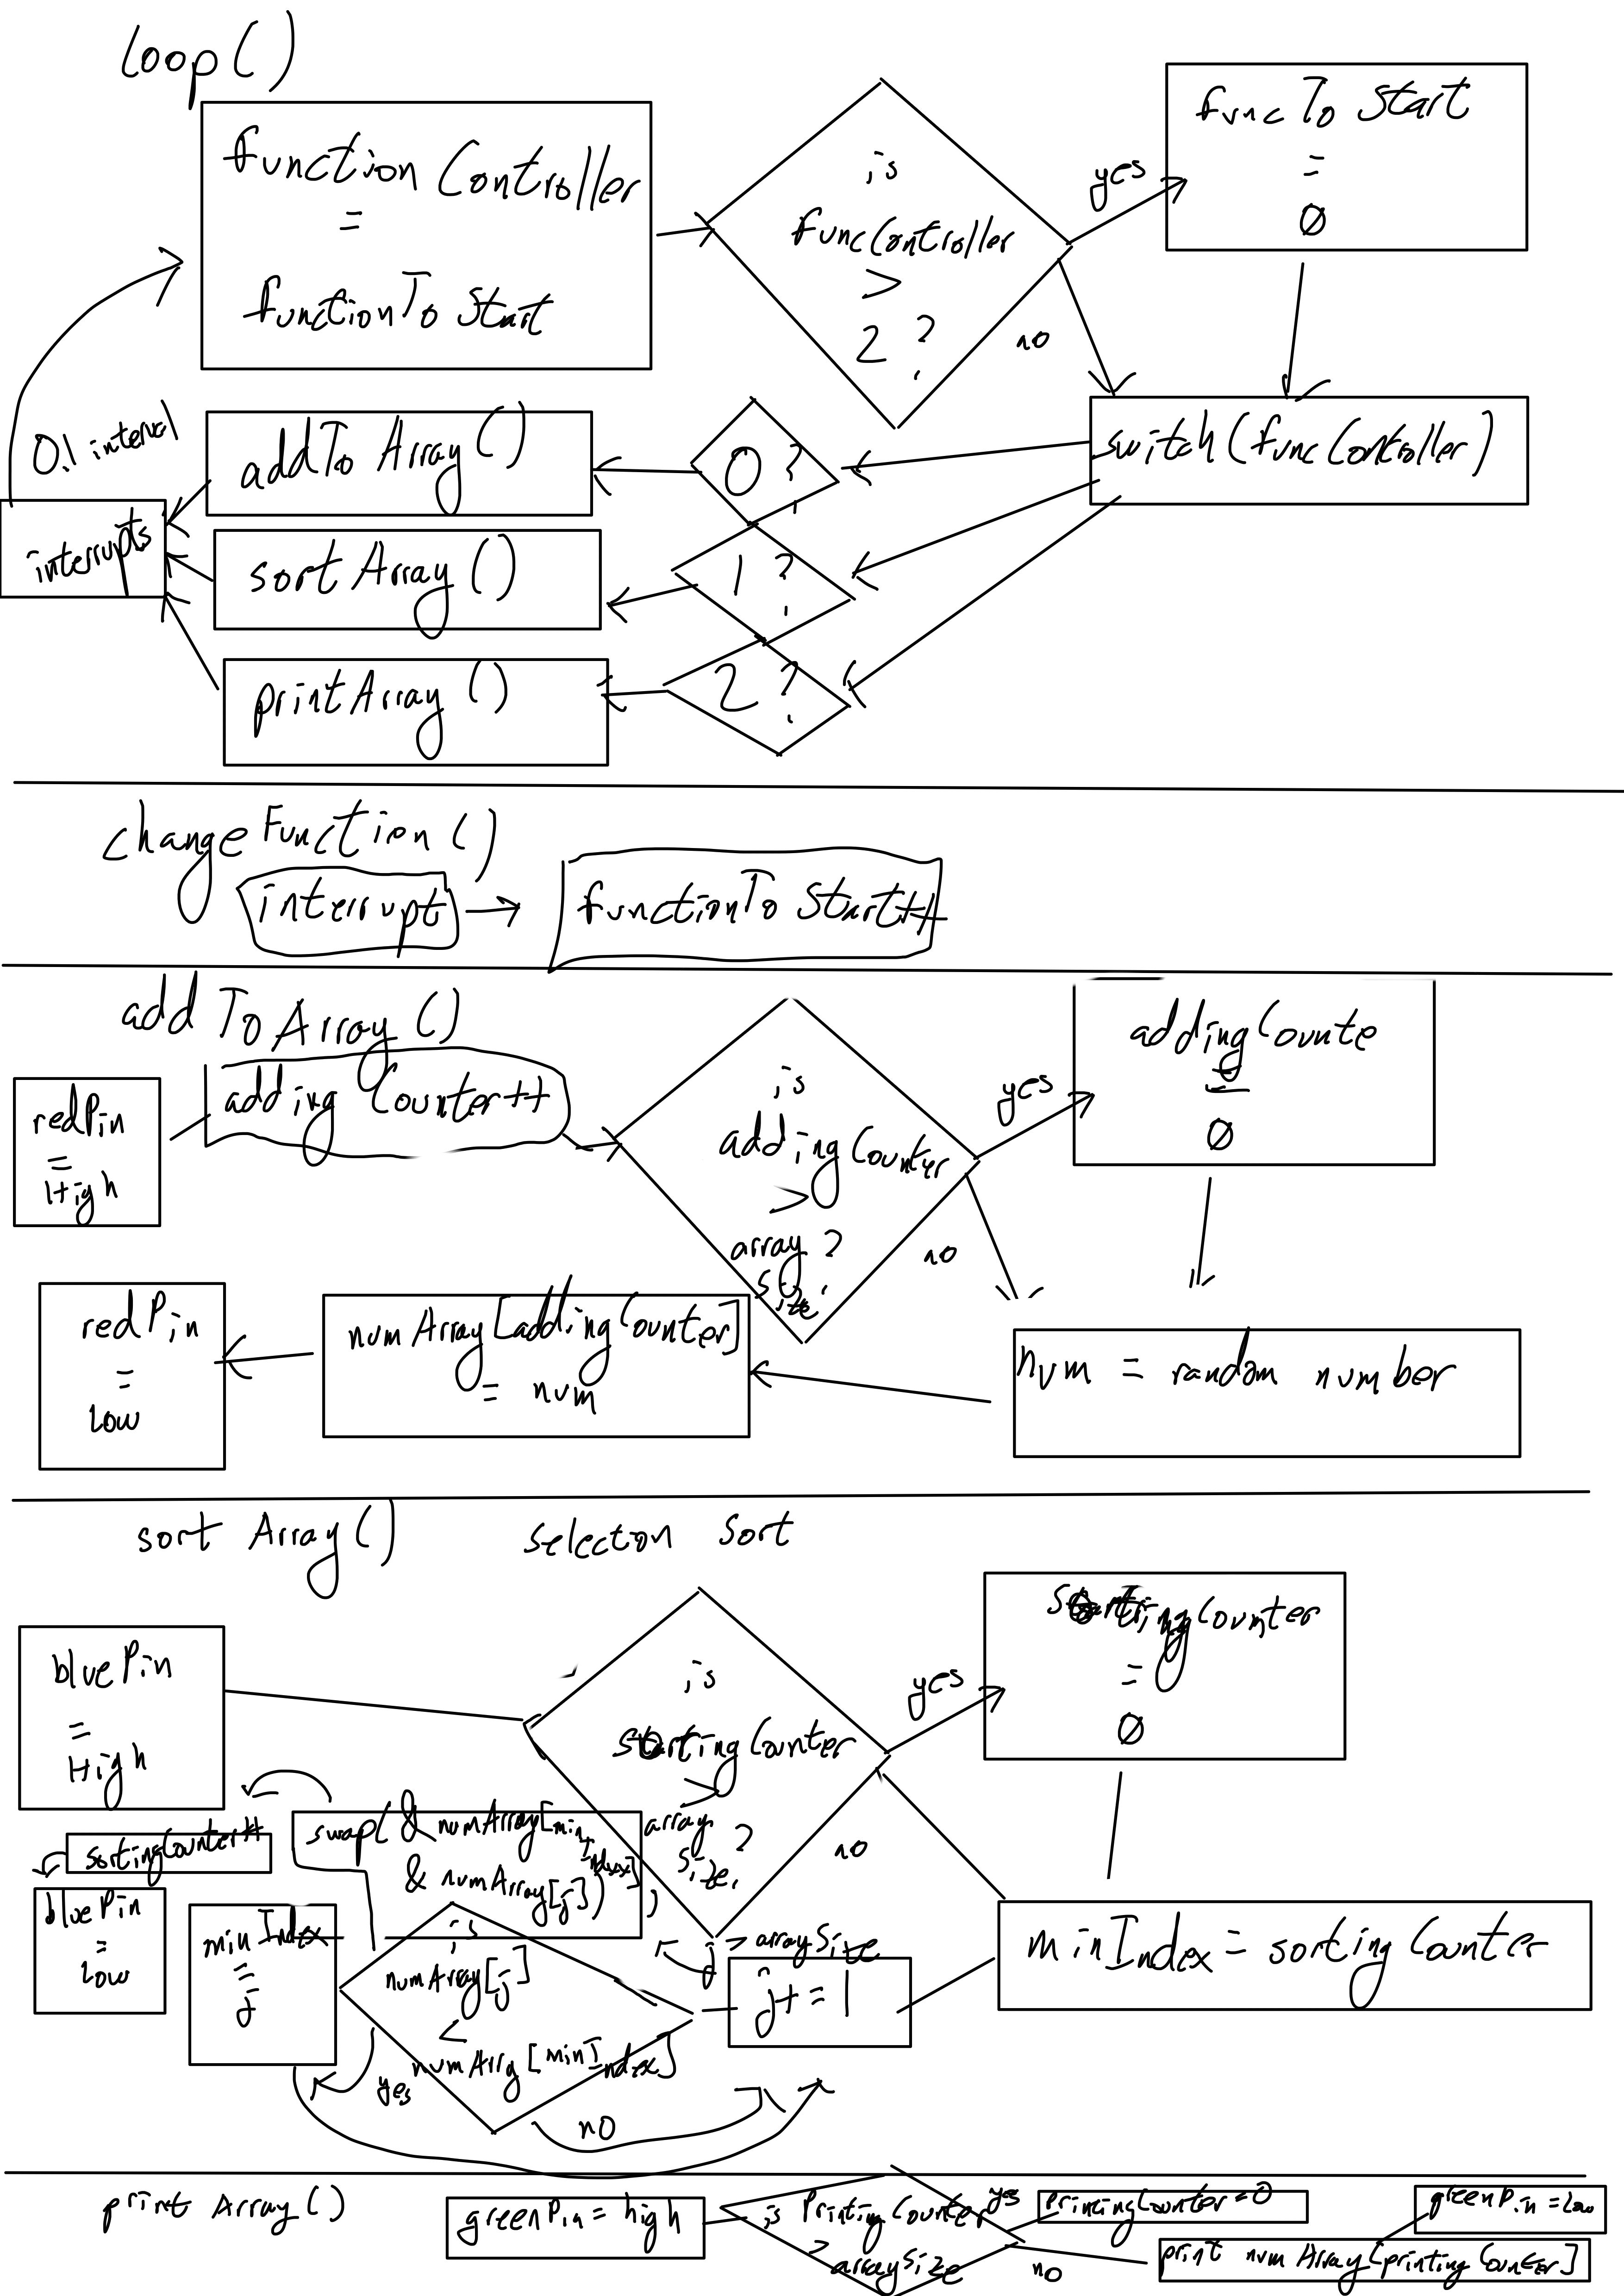 loop()
function Controller
=
functionTo Start
is
funcController
>
2 ?
yes
no
funcTo Start
=
0
switch(funcController)
0 ?
1 ?
2 ?
addTo Array()
sort Array()
print Array()
interrupts
changeFunction()
interrupt
functionTo Start++
add To Array()
redPin
=
High
adding Counter++
is
adding Counter
>
array ?
size
yes
no
addingCounte
=
0
num = random number
numArray[addingCounter]
= num
redPin
=
Low
sort Array()
selection sort
bluePin
=
High
is
sorting Counter
>
array ?
size
yes
no
sortingCounter
=
0
minIndex = sorting Counter
j+=1
j > arraySize
is
numArray[j]
<
numArry[minIndex]
yes
no
minIndex
=
j
swap( & numArray[minIndex],
& numArray[j])
sortingCounter++
bluePin
=
Low
print Array()
greenPin = high
is Printing Counter
>
arraySize
yes
no
printingCounter = 0
print numArray[printing Counter]
greenPin = Low